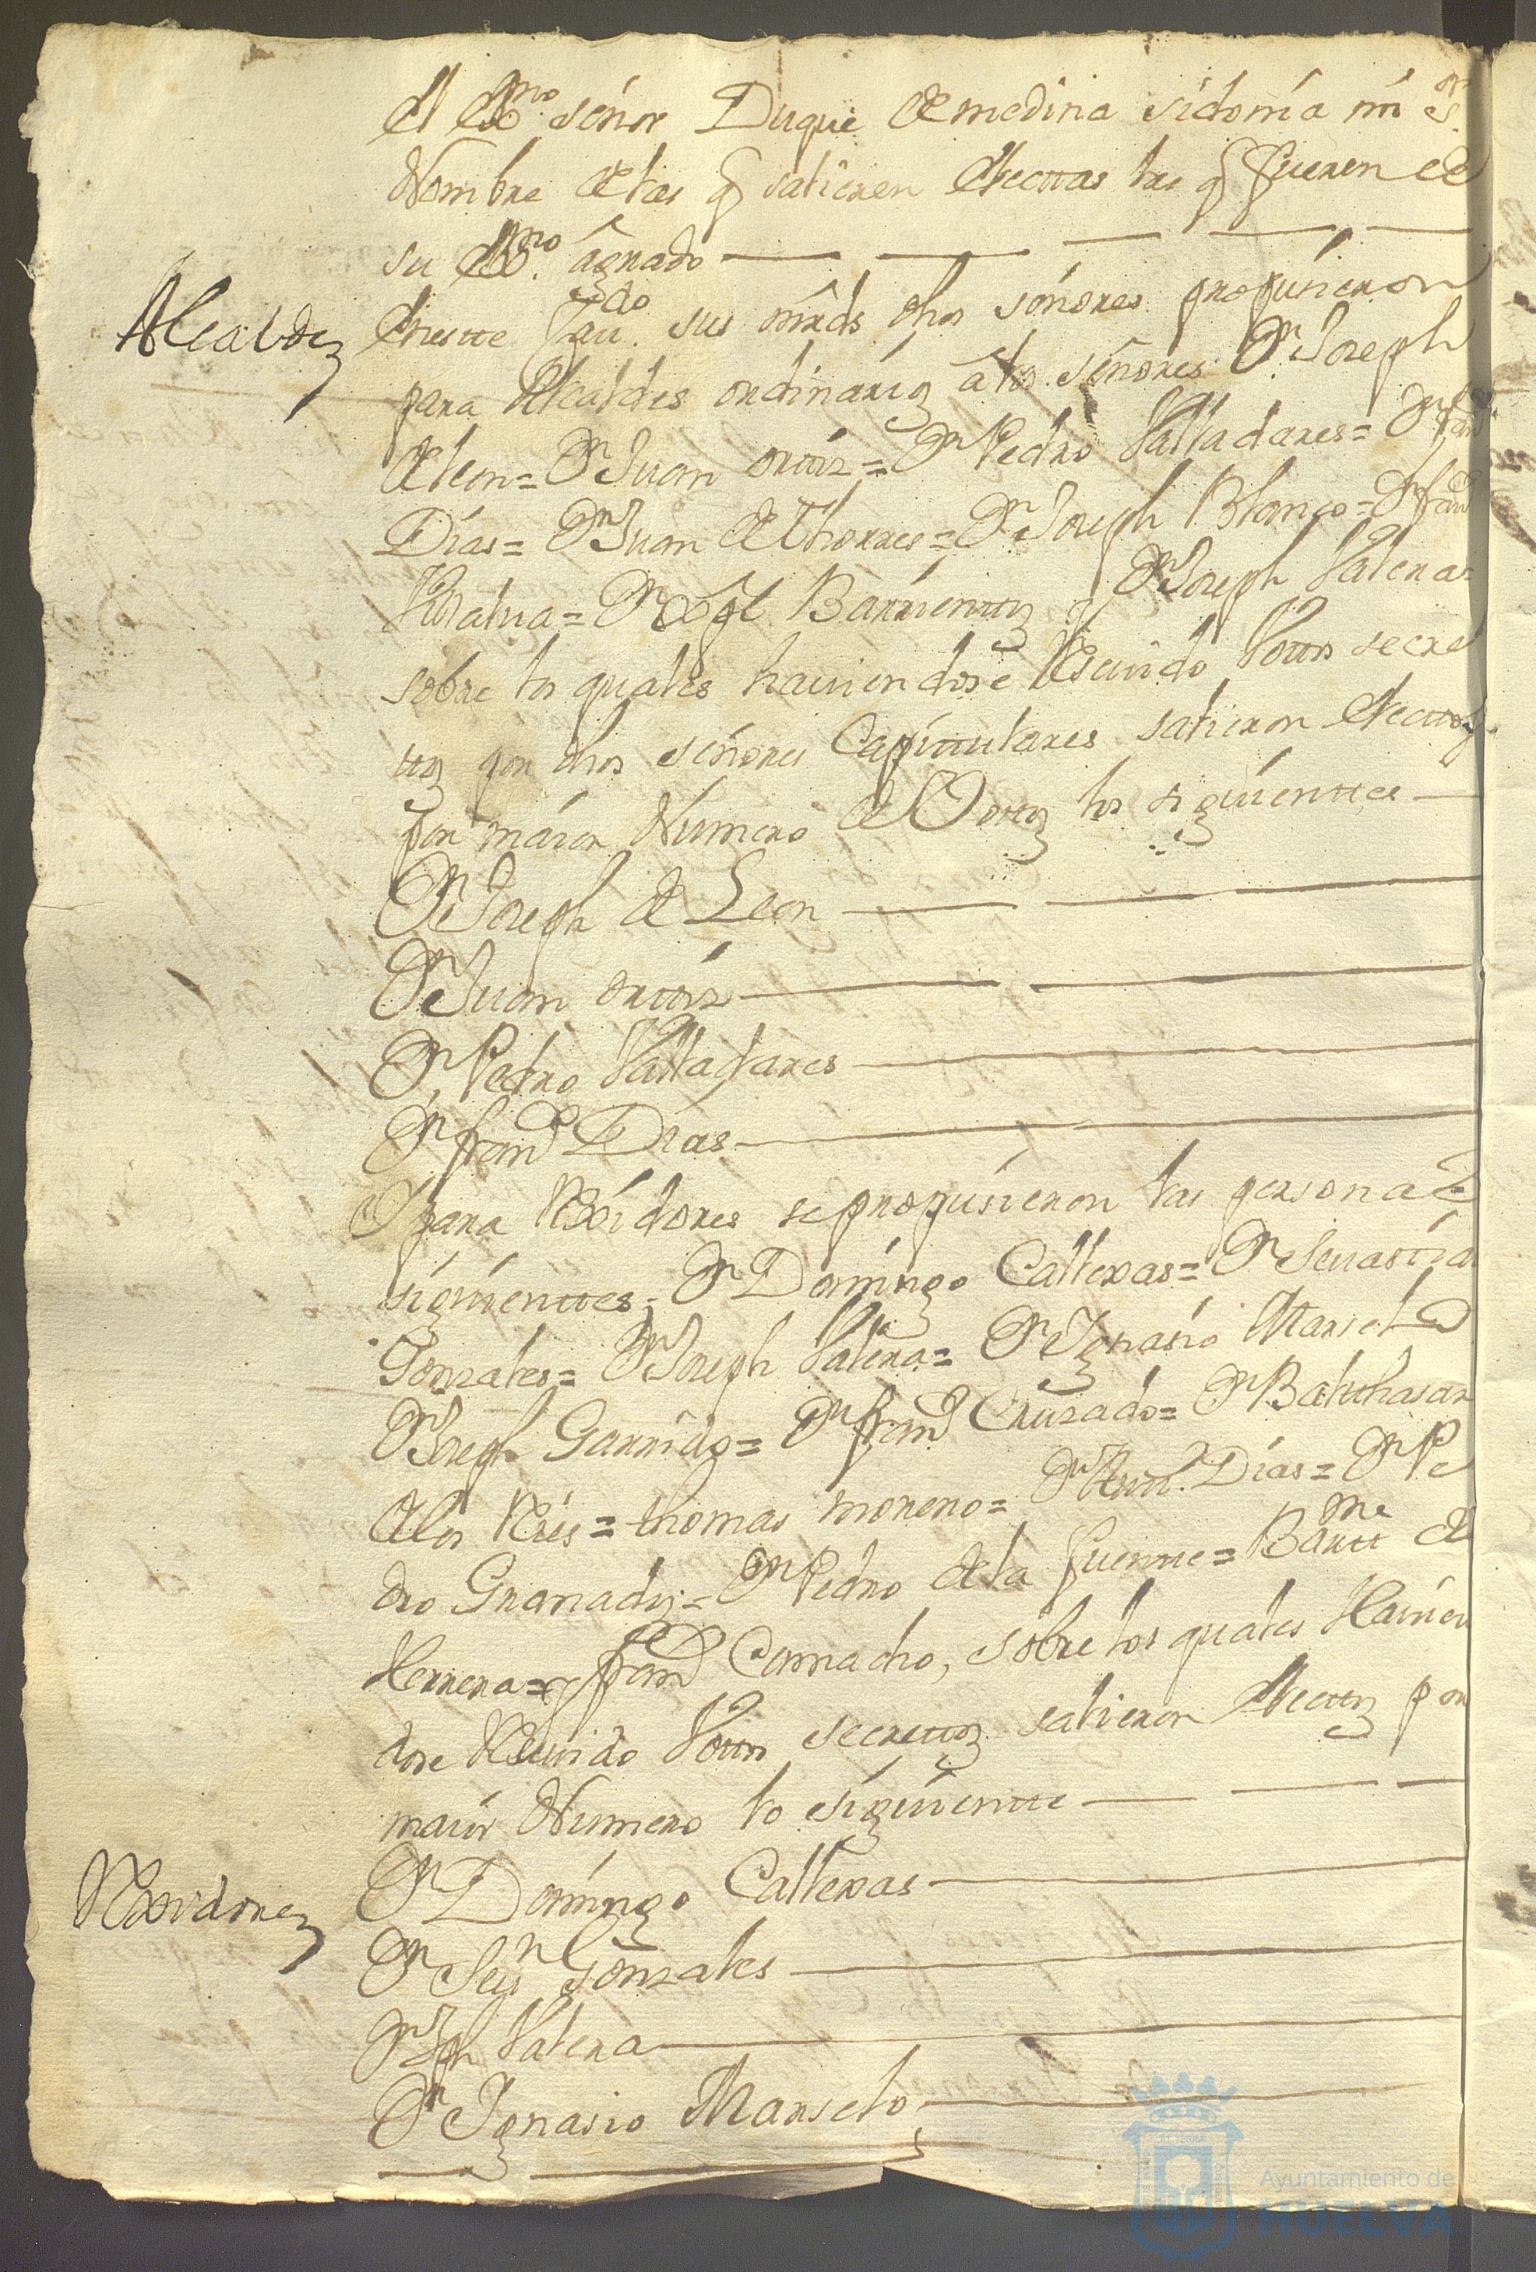 el Exmo. señor Duque de medina sidonia mi sr.
Nombre de las q salieren electtas las q fueren de
su Exmo. agrado
Alcaldes
En este Cavdo. sus mrds dhos señores propusieron
para Alcaldes ordinarios a los señores Dn Joseph
de leon = Dn Juan orttiz = Dn Pedro Valladares = Dn franco
Dias = Dn Juan de Thorres = Dn Joseph Blanco = Dn franco
Barrienttos y Dn Joseph Valera =
sobre los quales haviendose Resivido Vottos secre
ttos por dhos señores Capittulares salieron electtos
por maior Numero de Vottos los siguienttes
Dn Joseph de Leon
Dn Juan orttiz
Dn Pedro Valladares
Dn franco Dias
Y para Rexidores se propusieron las personas
siguienttes, Dn Domingo Callexas = Dn Sevastian
Gonzales = Dn Joseph Valera = Dn Ignasio Marselo
Dn Joseph Garrido = Dn franco Cruzado = Dn Balthasar
de los Reies = thomas moreno = Dn Antt. Dias = Dn Pe
dro Granados = Dn Pedro de la fuentte = Bartt me de
Herrera = y franco Camacho, sobre los quales Havien
dose Resivido Vottos secrettos salieron electtos por
maior Numero lo siguientte
Rexidores
Dn Domingo Callexas
Dn Sevn Gonzales
Dn Jph Valera
Dn Ignasio Marselo
Ayuntamiento de
HUELVA